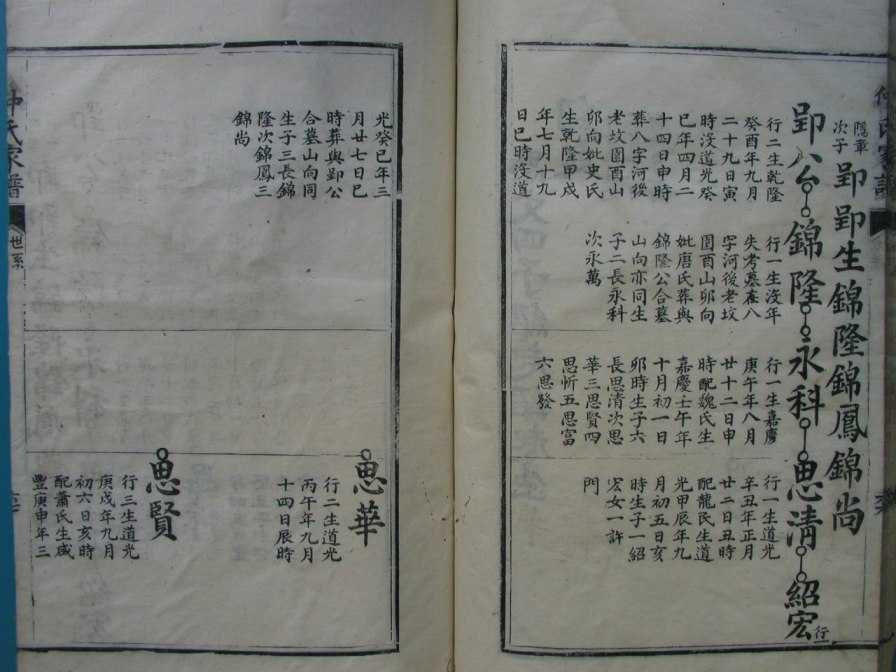 隱章
次子
郢 郢生錦隆錦鳳錦尚
郢公 錦隆 永科 思清 紹宏 行
行二生乾隆
癸酉年九月
二十九日寅
時没道光癸
巳年四月二
十四日申時
葬八字河後
老坟園酉山
卯向妣史氏
生乾隆甲戍
年七月十九
日巳時没道
行一生没年
失考墓在八
字河後老坟
園酉山卯向
妣唐氏葬與
錦隆公合墓
山向亦同生
子二長永科
次永萬
行一生嘉慶
庚午年八月
廿十二日申
時配魏氏生
嘉慶壬午年
十月初一日
卯時生子六
長思清次思
華三思賢四
思忻五思富
六思發
行一生道光
辛丑年正月
廿二日丑時
配龍氏生道
光甲辰年九
月初五日亥
時生子一紹
宏女一許
門
光癸巳年三
月廿七日巳
時葬與郢公
合墓山向同
生子三長錦
隆次錦鳳三
錦尚
思華
行二生道光
丙午年九月
十四日辰時
思賢
行三生道光
庚戍年九月
初六日亥時
配蕭氏生咸
豐庚申年三
氏家譜
世系